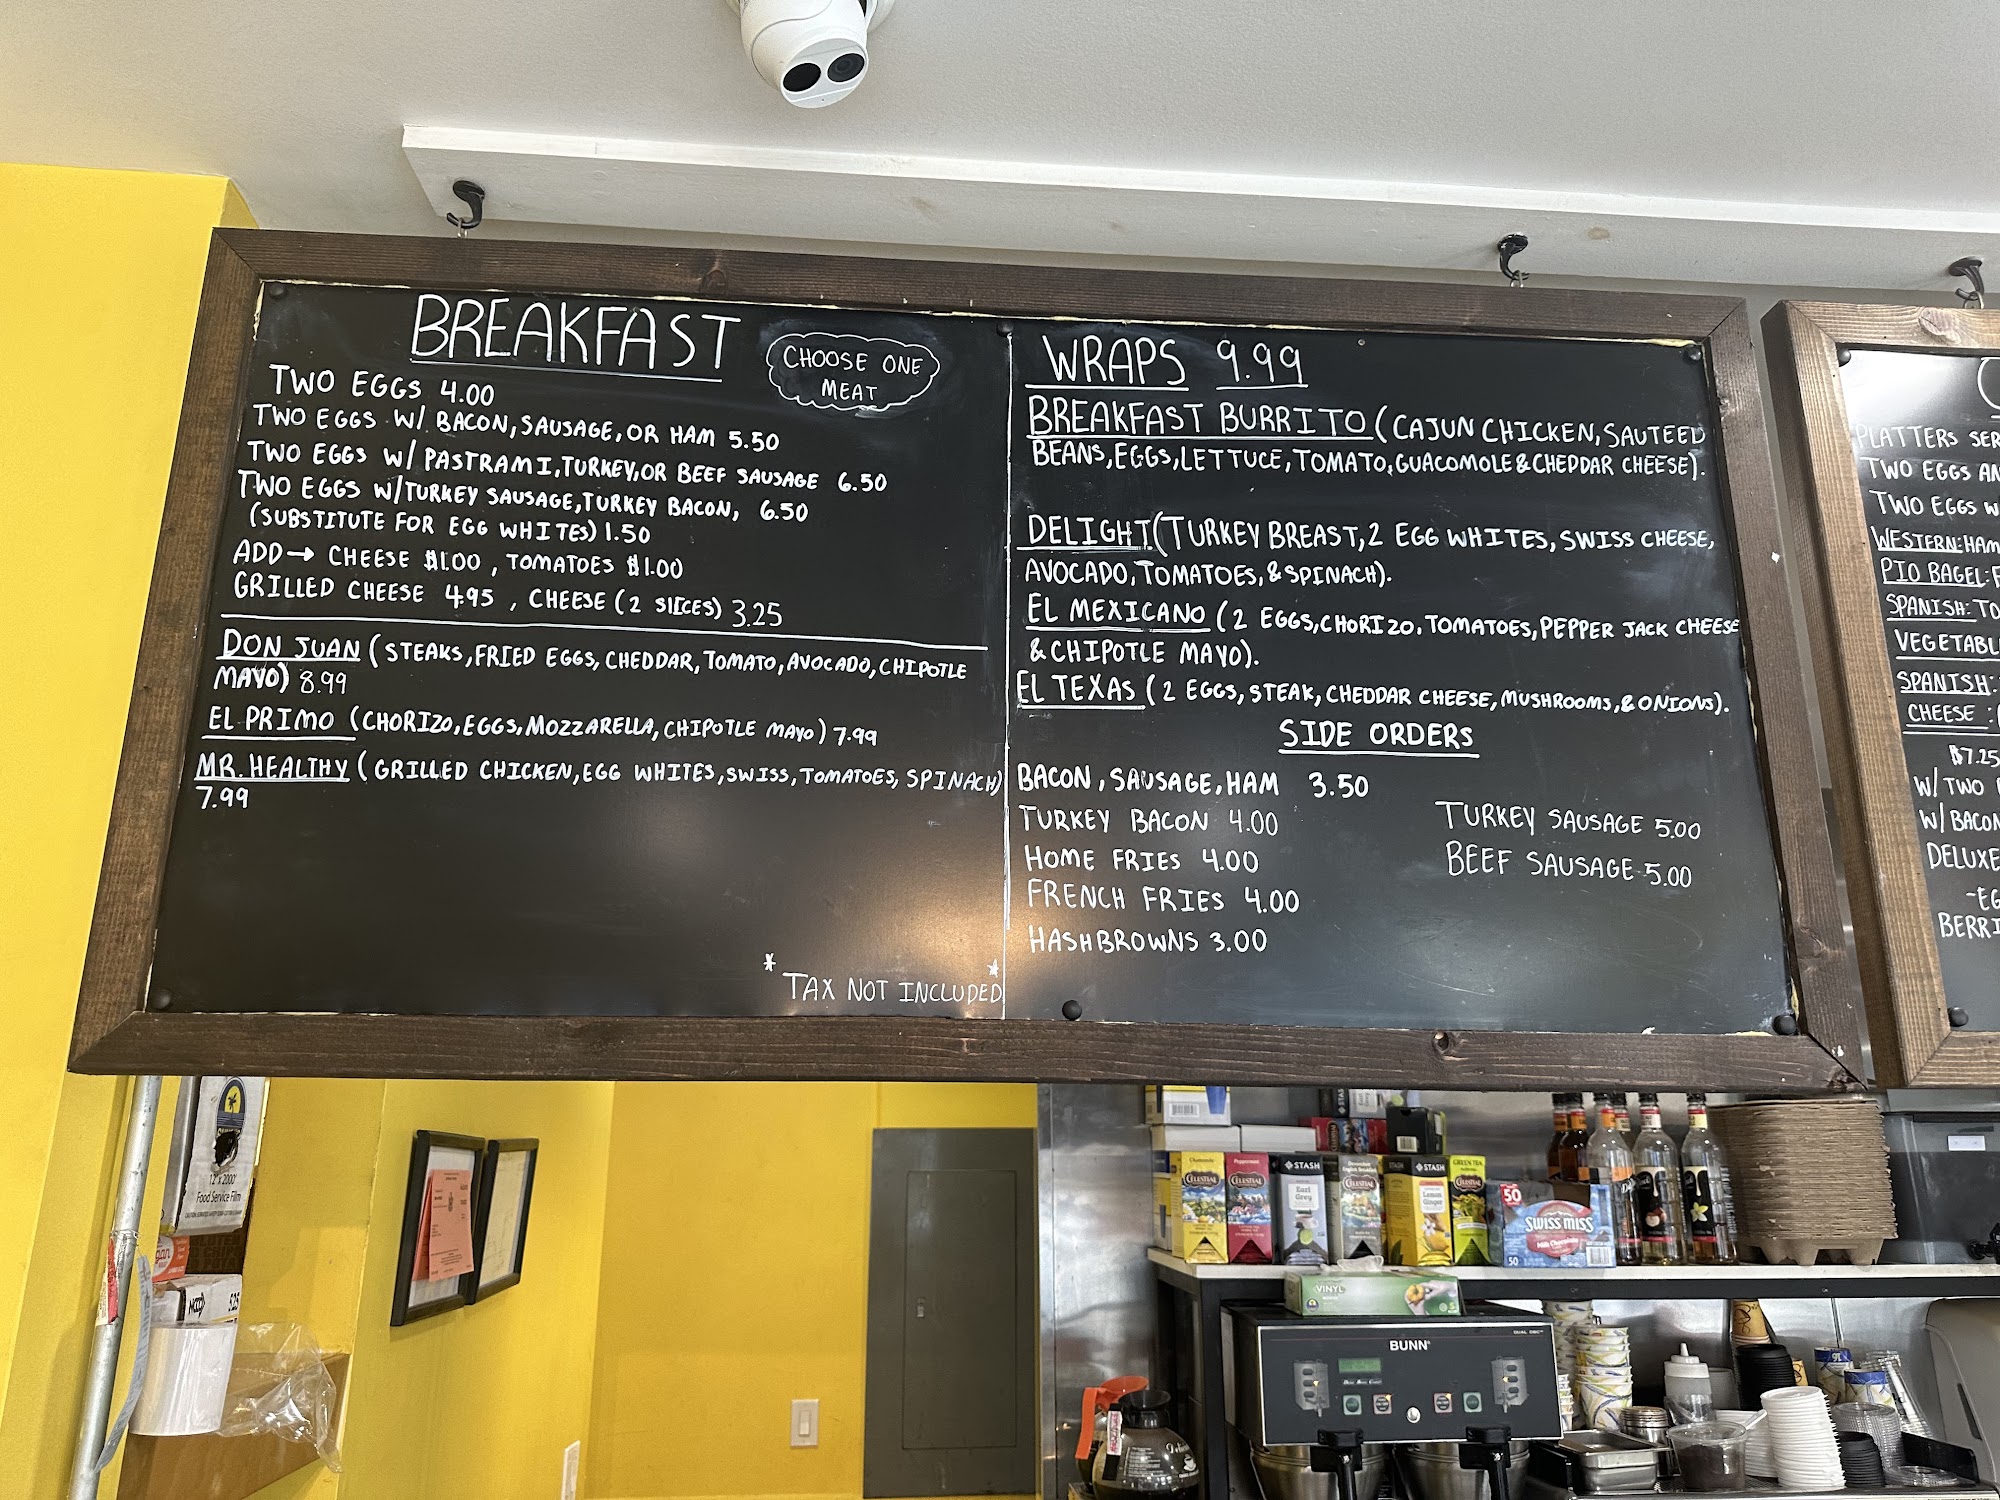 BREAKFAST
CHOOSE ONE
MEAT
TWO EGGS 4.00
TWO EGGS W/ BACON, SAUSAGE, OR HAM 5.50
TWO EGGS W/ PASTRAMI, TURKEY, OR BEEF SAUSAGE 6.50
TWO EGGS W/TURKEY SAUSAGE, TURKEY BACON, 6.50
(SUBSTITUTE FOR EGG WHITES) 1.50
ADD→ CHEESE $1.00, TOMATOES $1.00
GRILLED CHEESE 4.95, CHEESE (2 SLICES) 3.25
DON JUAN (STEAKS, FRIED EGGS, CHEDDAR, TOMATO, AVOCADO, CHIPOTLE
MAYO) 8.99
EL PRIMO (CHORIZO, EGGS, MOZZARELLA, CHIPOTLE MAYO) 7.99
MR. HEALTHY (GRILLED CHICKEN, EGG WHITES, SWISS, TOMATOES, SPINACH)
7.99
* TAX NOT INCLUDED *
WRAPS 9.99
BREAKFAST BURRITO (CAJUN CHICKEN, SAUTEED
BEANS, EGGS, LETTUCE, TOMATO, GUACOMOLE & CHEDDAR CHEESE).
DELIGHT (TURKEY BREAST, 2 EGG WHITES, SWISS CHEESE,
AVOCADO, TOMATOES, & SPINACH).
EL MEXICANO (2 EGGS, CHORIZO, TOMATOES, PEPPER JACK CHEESE
& CHIPOTLE MAYO).
EL TEXAS (2 EGGS, STEAK, CHEDDAR CHEESE, MUSHROOMS, & ONIONS).
SIDE ORDERS
BACON, SAUSAGE, HAM 3.50
TURKEY BACON 4.00
HOME FRIES 4.00
FRENCH FRIES 4.00
HASHBROWNS 3.00
TURKEY SAUSAGE 5.00
BEEF SAUSAGE 5.00
PLATTERS SER
TWO EGGS AN
TWO EGGS W
WESTERN: HAM
PIO BAGEL: F
SPANISH: TO
VEGETABL
SPANISH:
CHEESE :(
$7.25
W/ TWO
W/ BACON
DELUXE
-EG
BERRI
12" x 2000'
Food Service Film
Chamomile
CELESTIAL
Peppermint
CELESTIAL
STASH
Earl
Grey
CELESTIAL
STASH
STASH
Lemon
Ginger
GREEN TEA
CELESTIAL
50
SWISS MISS
Milk Chocolate
50
VINYL
BUNN